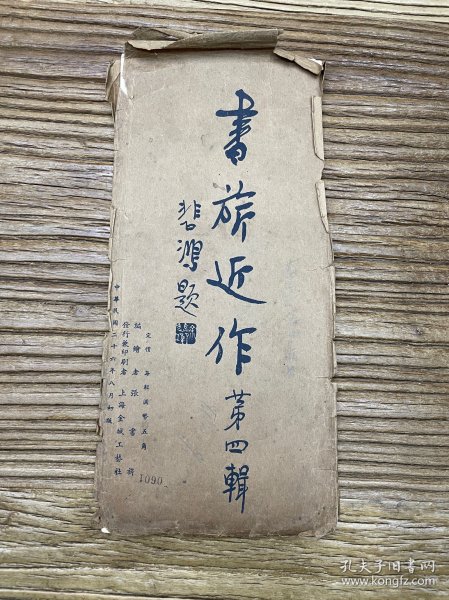 書旂近作第四輯
悲鴻題
定價 每輯國幣五角
編繪者 張書旂
發行兼印刷者 上海金城工藝社
中華民國二十六年八月初版
1090
孔夫子旧书网
www.kongfz.com